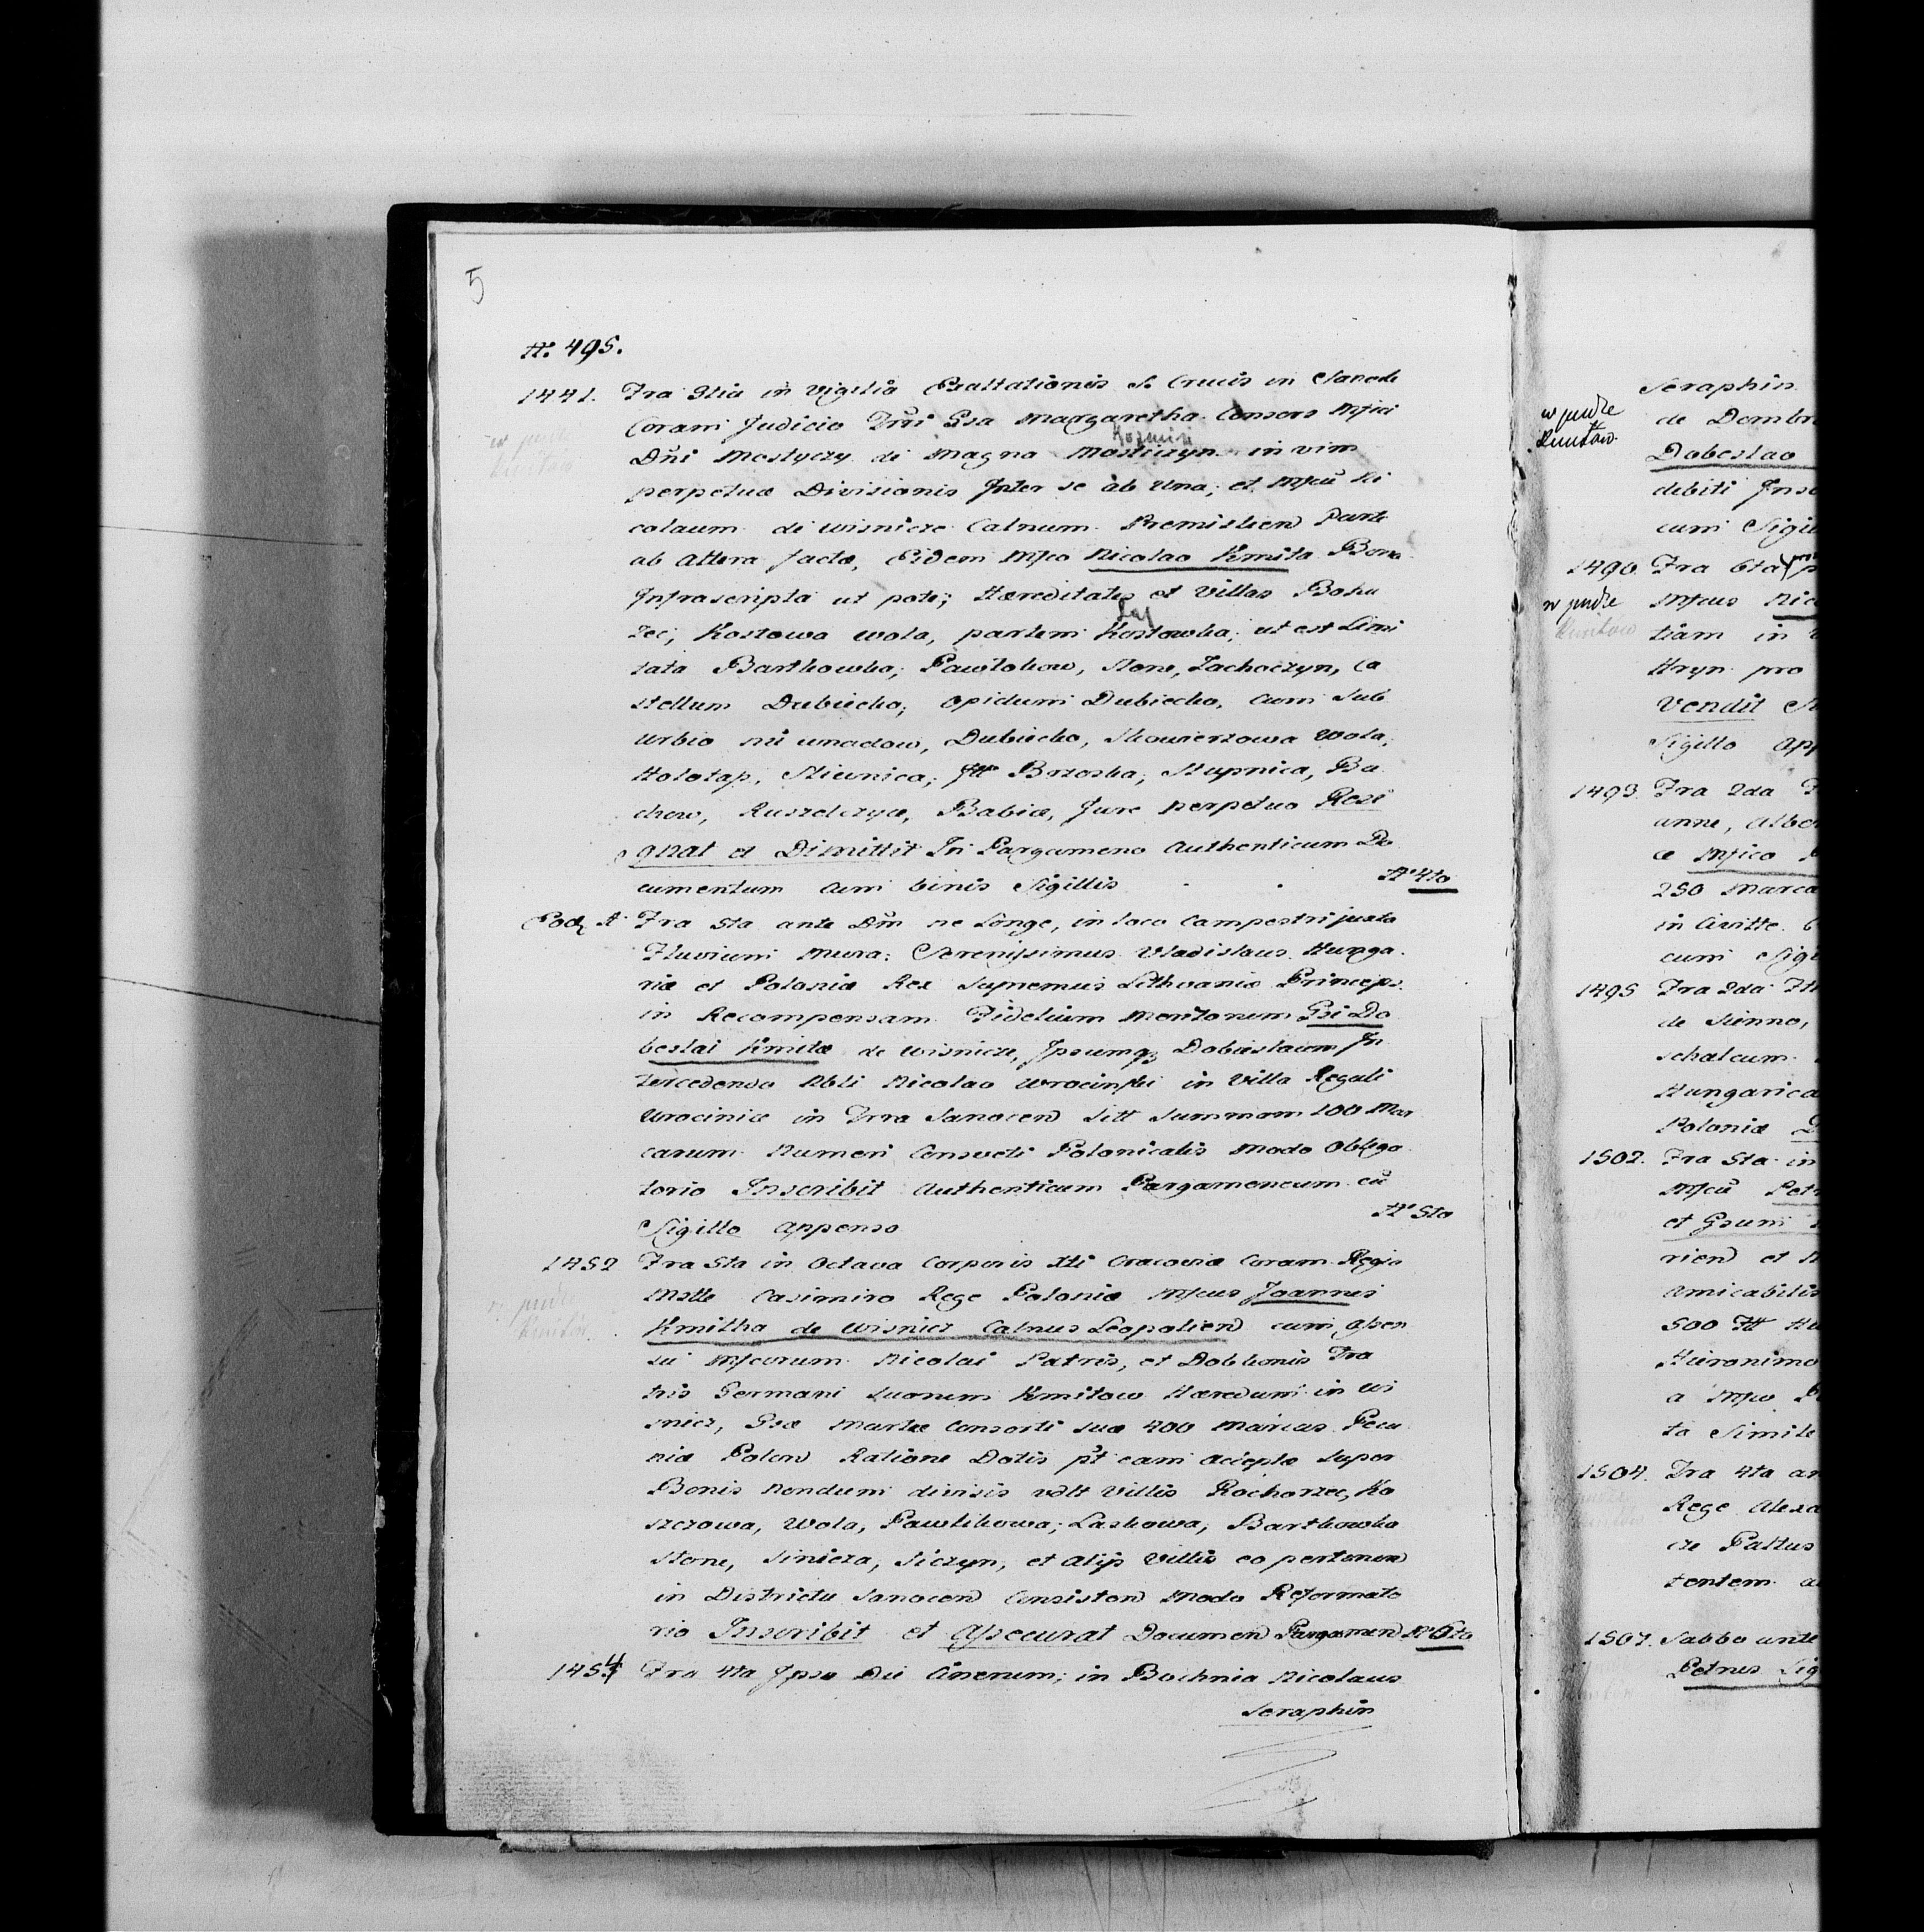 5
N. 495.
1441. Fra 3tia in Vigilia Exaltationis S. Crucis in Sanock
Coram Judicio Trri Gsa Margaretha Consors Mfici
Kozmin
Dni Mostyczy de Magna Mosticzyn in vim
perpetuæ Divisionis Inter se ab Una; et Mfcū Ni
colaum de Wisnicze Calnum Premislien Parte
ab Altera factæ, Eidem Mfco Nicolao Kmita Bona
Infrascripta ut pote; Hæreditates et Villas Bohu
Las
rec; Kostowa Wola, partem Kostowka, ut est Limi
tata Barthowka; Pawlokow, Slone, Zachoczyn, Ca
stellum Dubiecko; Opidum Dubiecko, cum Sub
urbio, Dubiecko, Skowierzowa Wola,
Holotap, Sliwnica; Brzoska; Stupnica, Ba
chow, Ruszelczyce, Babice, Jure perpetuo Resi
gnat et Dimittit In Pargameno Authenticum Do
cumentum cum binis Sigillis . . No 4to
Eod A. Fra 5ta ante Dnm ne Longe, in loco Campestri juxta
Fluvium Mura: Serenissimus Vladislaus Hunga
riæ et Poloniæ Rex Supremus Lithvaniæ Princeps.
in Recompensam Fidelium Meritorum Gsi Do
beslai Kmitæ de Wisnicze, Ipsumq; Dobieslaum In
tercedendo Nbli Nicolao Wrocinski in Villa Regali
Wrocinice in Trra Sanocen Sitt Summam 100 Mar
carum Numeri Consveti Polonicalis Modo Obliga
torio Inscribit Authenticum Pargameneum cū
Sigillo Appenso No 5to
1452 Fra 5ta in Octava Corporis Xti Cracoviæ Coram Regia
Mtte Casimiro Rege Poloniæ Mfcus Joannes
Kmitha de Wisnicz Calnus Leopolien cum Assen
su Mfcorum Nicolai Patris, et Dobkonis Fra
tris Germani Suorum Kmitow Hæredum in Wi
snicz, Gsæ Marthæ Consorti Suæ 400 Marcas Pecu
niæ Polon Ratione Dotis pt eam acceptæ Super
Bonis Nondum divisis vdlt Villis Rochorzec, Ko
szczowa, Wola, Pawlikowa; Laskowa, Barthowka
Slone, Sinicza, Siczyn, et Alijs Villis eo pertinen
in Districtu Sanocen Consisten Modo Reformato
rio Inscribit et Assecurat Documen Pargamen No 6to
1454 Fra 4ta Ipso Die Cinerum; in Bochnia Nicolaus
Seraphin
Seraphin
w pudle
Kmitow
de Dombr
Dobeslao
debiti Ins
cum Sigil
1490. Fra 6ta p
w pudle
Kmitow
Mfcus Nic
tiam in
Hryn pro
Vendit
Sigillo App
1493. Fra 2da
anne, Alber
ce Mfico
250 Marca
in Civitte
cum Sigi
1495 Fra 2da
de Sienno,
schalcum
Hungarica
Poloniæ
1502. Fra 5ta in
Mfcū Petr
et Gsum
rien et
Amicabilis
500
Hieronimo
a Mfco
ta Simile
1504. Fra 4ta an
Rege Alexa
de Pattus
tentem a
1507. Sabbo ante
Petrus Sig